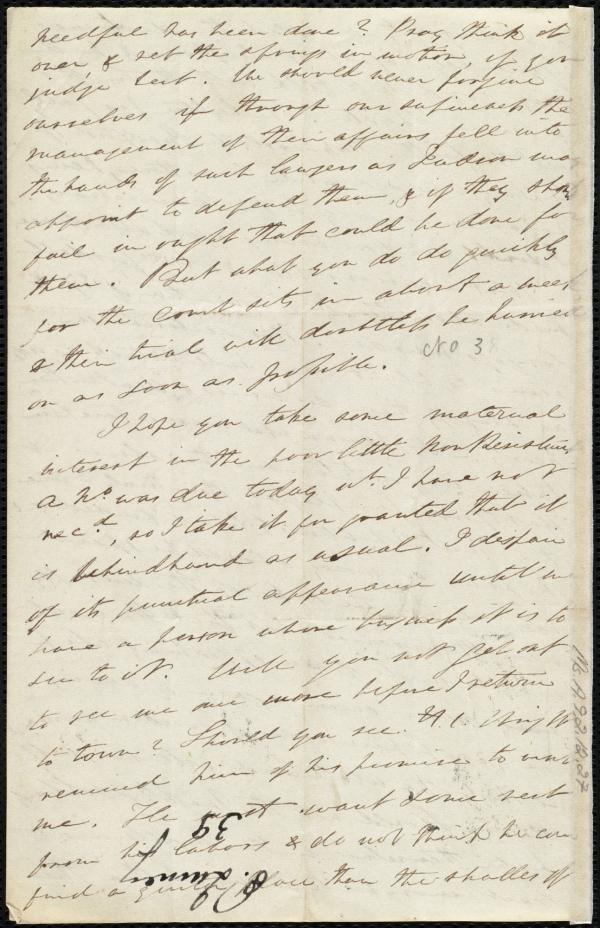 needful has been done? Pray think it
over, & set the springs in motion, if you
judge best. We should never forgive
ourselves if through our supineness the
management of their affairs fell into
the hands of such lawyers as Judson may
appoint to defend them, & if they should
fail in ought that could be done for
them. But what you do do quickly
for the court sits in about a week
& their trial will doubtless be hurried
on as soon as possible.
No 3
I hope you take some maternal
interest in the poor little Non Resistant
a No. was due today wh. I have not
recd, so I take it for granted that it
is behindhand as usual. I despair
of its punctual appearance until we
have a person whose business it is to
see to it. Will you not get out
to see me once more before I return
to town? Should you see H. C. Wright
remind him of his promise to visit
me. He must want some rest
from his labors & do not think he can
find a quieter place than the shades of
39
Ms. A. 9.2. 12. 27